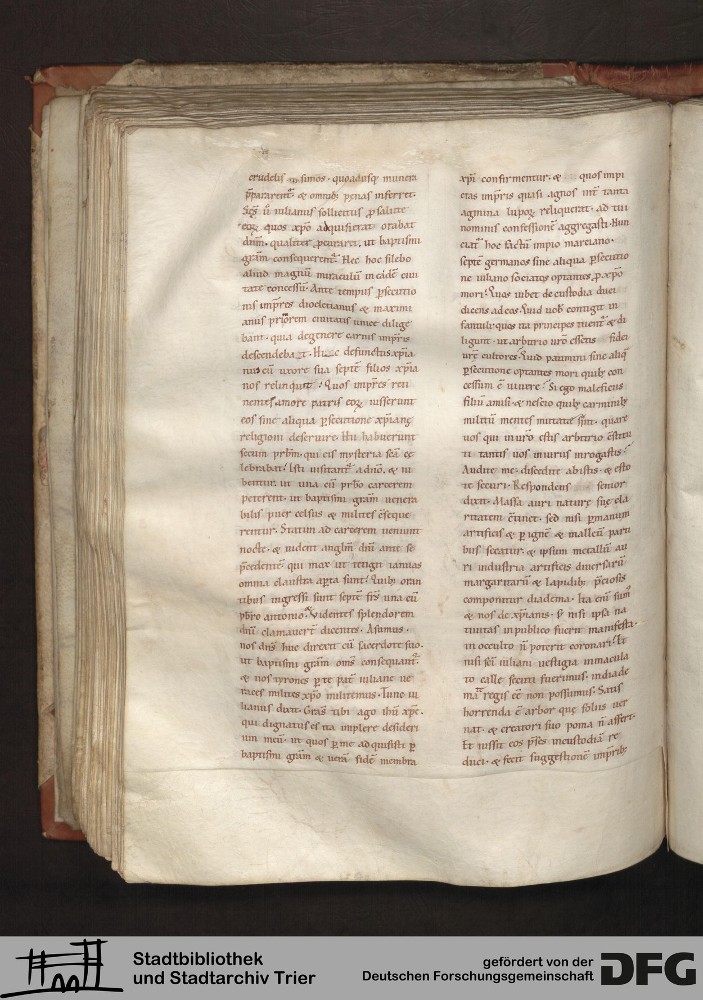 crudelis simos · quoadusq; munera
p̄pararent᷑ · & omnib; penas inferret ·
Sc̄s ū iulianus sollicitus ꝓ salute
eoꝝ quos xp̄o adquisierat · orabat
dn̄m · qualiter ꝓcuraret · ut baptismi
gr̄am consequerent᷑ · Hec hoc silebo
aliud magnū miraculū in eadē ciui
tate concessū · Ante tempus ꝑsecutio
nis imp̄res dioclecianus & maximi
anus priorem ciuitatis unice dilige
bant · quia de genere carnis imp̄ris
descendebat · defunctus xp̄ia
nus cū uxore sua septē filios xp̄ia
nos reliquit · Quos imp̄res reti
nentes amore patris eoꝝ iusserunt
eos sine aliqua ꝑsecutione xp̄iang
religioni deseruire · Hii habuerunt
secum prb̄m · qui eis mysteria scā ce
lebrabat · Isti uisitant᷑ a dn̄o · & iu
bentur · in una cū prb̄o carcerem
peterent · ut baptismi gr̄am uenera
bilis puer celsus & milites c̄seque
rentur · Statim ad carcerem ueniunt
nocte · & uident anglm̄ dn̄i ante se
p̄cedentē qui mox ut tetigit ianuas
omnia claustra aꝑta sunt · Quib; oran
tibus ingressi sunt septē frs̄ una cū
pb̄ro antonio · Videntes splendorem
dn̄i clamauer̄t dicentes · Asumus ·
nos dn̄s huc direxit cū sacerdote suo ·
ut baptismi gr̄am om̄s consequant᷑ ·
& nos tyrones ꝑ te pat̄ iuliane ue
races milites xp̄o militemus · Tunc iu
lianus dixit · Gr̄as tibi ago ihū xp̄e ·
qui dignatus es ita implere desideri
um meū · ut quos ꝑ me adquisisti ꝑ
baptismi gr̄am & uerā fidē membra
xp̄i confirmentur · & quos impi
etas imp̄ris quasi agnos int̄ tanta
agmina lupoꝝ reliquerat · ad tui
nominis confessionē aggregasti · Nun
ciat᷑ hoc factū impio marciano ·
septē germanos sine aliqua ꝑsecutio
ne iuliano sociatos optantes ꝓ xp̄o
mori · Quos iubet de custodia duci
dicens ad eos · Quid uob̄ contigit in
fantuli · quos ita principes nut̄ent · & di
ligunt · ut arbitrio ur̄o essetis fidei
ur̄e cultores · Quid patimini sine aliq̄
ꝑsecutione optantes mori quib; con
cessum ē uiuere · Si ego maleficus
filiū amisi · & nescio quib; carminib;
militū mentes mutatae sunt · quare
uos qui in ur̄o estis arbitrio c̄stitu
ti tantis uos iniuriis irrogastis ·
Audite me · discedite ab istis · & esto
te securi · Respondens senior
dixit · Massa auri nature sue cla
ritatem c̄tinet · sed nisi ꝑ manum
artificis & ꝑ ignē & malleū parti
bus secatur · & ipsum metallū au
ri industria artificis diuersarū
margaritarū & lapidib; p̄ciosis
componitur diadema · Ita enī sum᷑
& nos de xp̄ianis · & nisi ipsa na
tiuitas in publico fuerit manifesta ·
in occulto n̄ poterit coronari · Et
nisi sc̄i iuliani uestigia inmacula
to calle secuti fuerimus · in diade
mate regis eē non possumus · Satis
horrenda ē arbor que foliis uer
nat · & creatori suo poma n̄ affert ·
Et iussit eos p̄ses in custodiā re
duci · & fecit suggestionē imp̄rib;
Stadtbibliothek
und Stadtarchiv Trier
gefördert von der
Deutschen Forschungsgemeinschaft
DFG